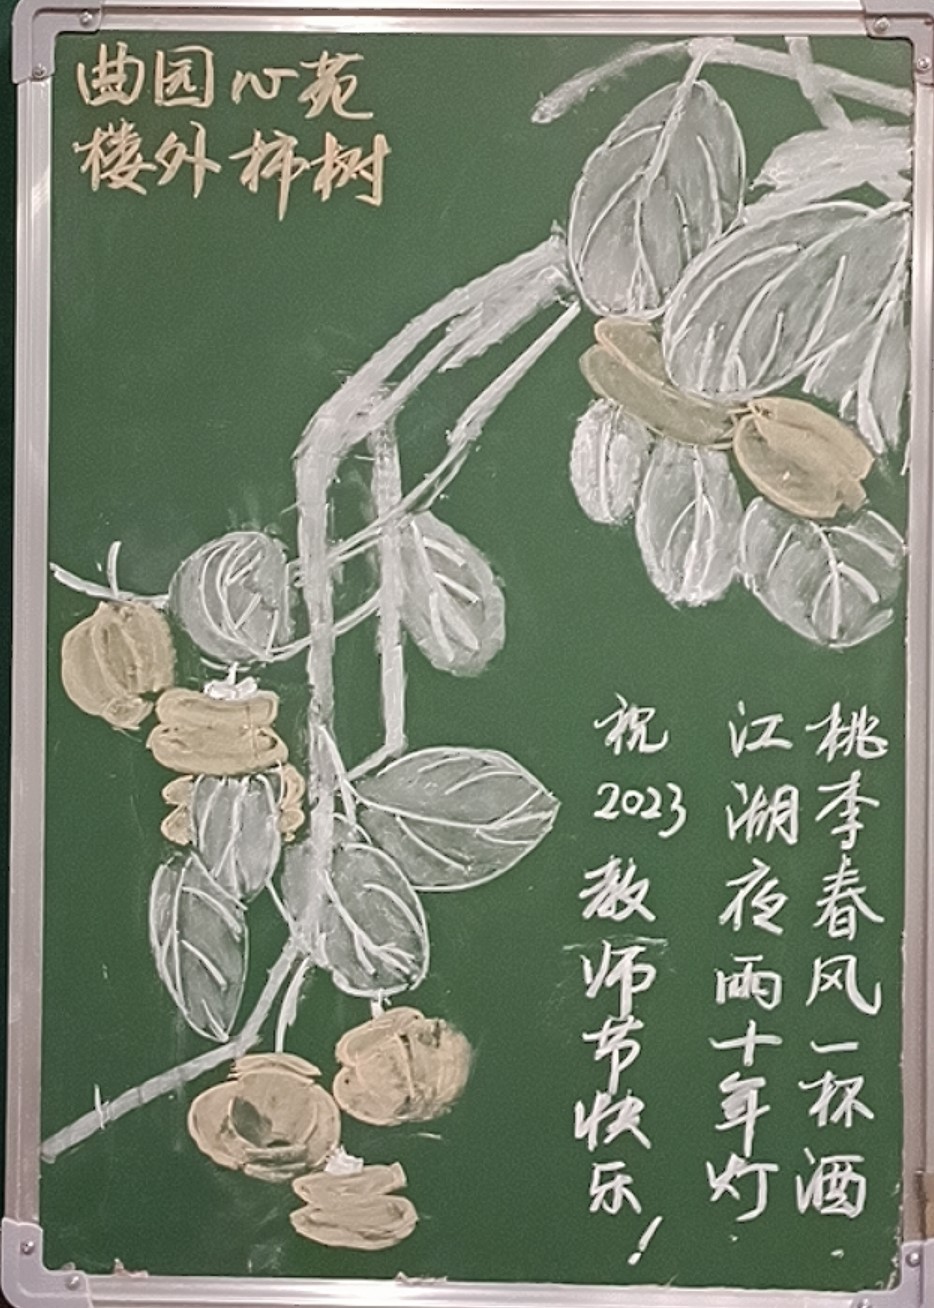 曲园心苑
楼外柿树
桃李春风一杯酒.
江湖夜雨十年灯.
祝2023教师节快乐!